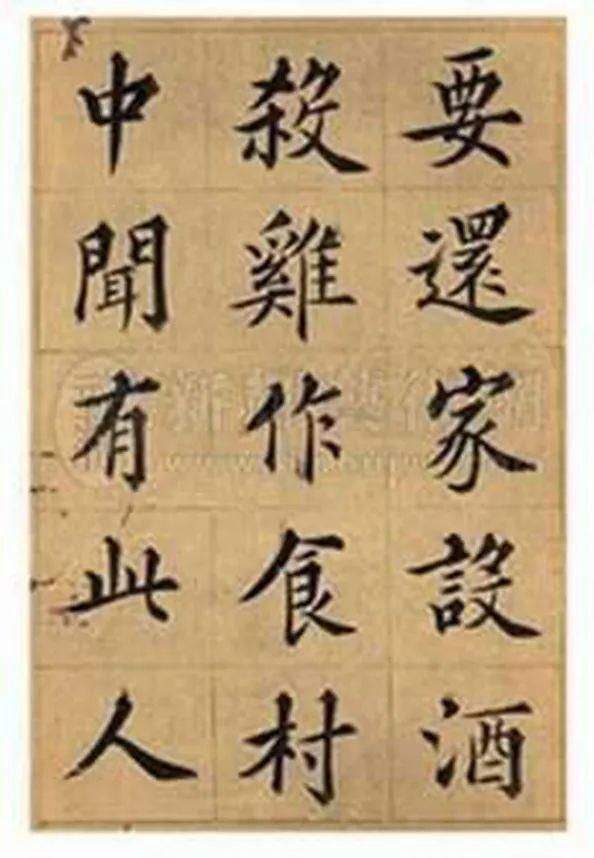 要還家設酒
殺雞作食村
中聞有此人